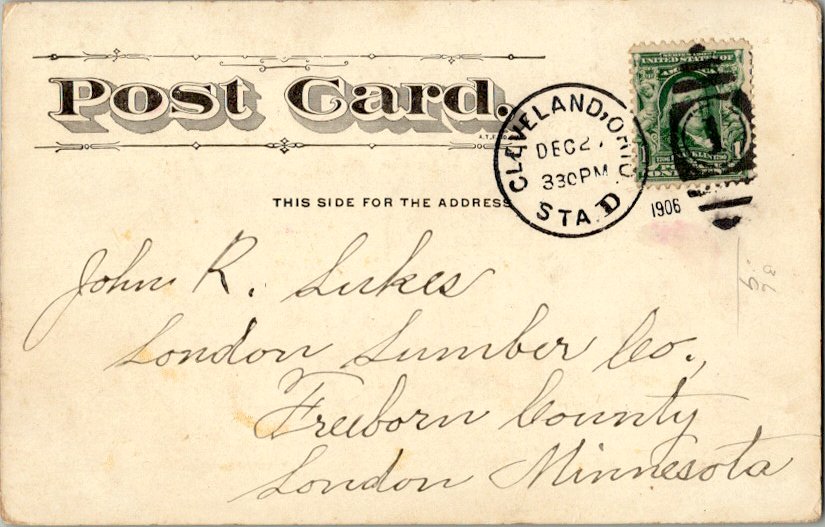 Post Card.
THIS SIDE FOR THE ADDRESS
CLEVELAND, OHIO
DEC 2
330PM
STA. D
1906
UNITED STATES OF
AMERICA
1
John R. Lukes
London Lumber Co.,
Freeborn County
London Minnesota
36